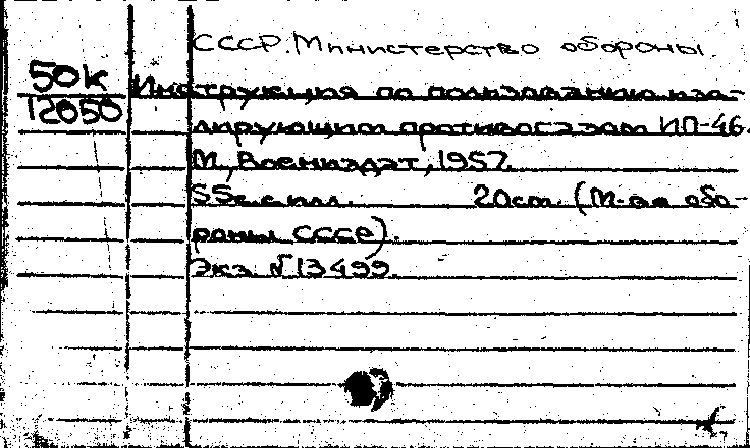 СССР. Министерство обороны.
50к
12050
Инструкция по пользованию изо-
лирующим противогазам ИП-46.
М., Воениздат, 1957.
55с. с илл. 20cm. (М-во обо-
роны СССР).
Экз. №13499.